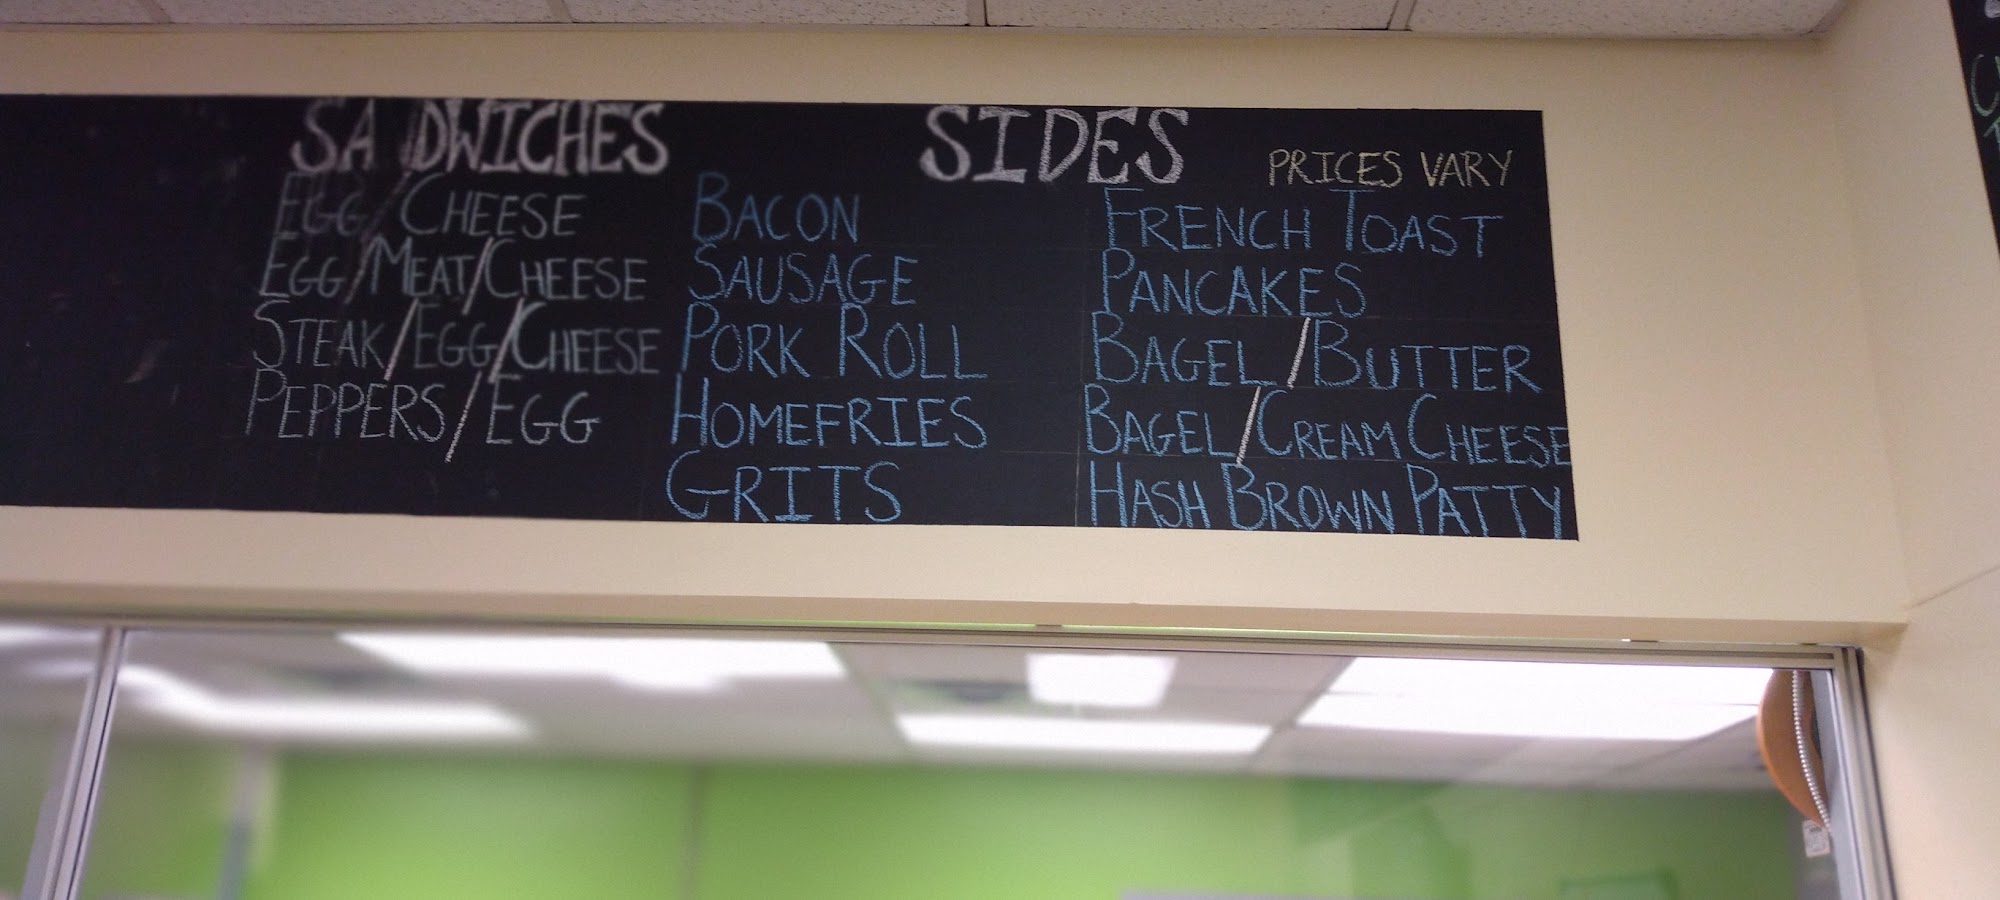 SA DWICHES
EGG/CHEESE
EGG/MEAT/CHEESE
STEAK/EGG/CHEESE
PEPPERS/EGG
SIDES
PRICES VARY
BACON
SAUSAGE
PORK ROLL
HOMEFRIES
GRITS
FRENCH TOAST
PANCAKES
BAGEL/BUTTER
BAGEL/CREAM CHEESE
HASH BROWN PATTY